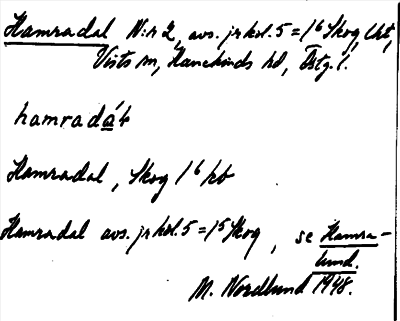 Hamradal N:r 2, avs. jrkol. 5 = 1⁶ Skog, Lht,
Vists sn, Hanekinds hd, Östg. l.
hamradáɫ
Hamradal, Skog 1⁶ kb
Hamradal avs. jrkol. 5 = 1⁵ Skog, se Hamra-
lund.
M. Nordlund 1948.